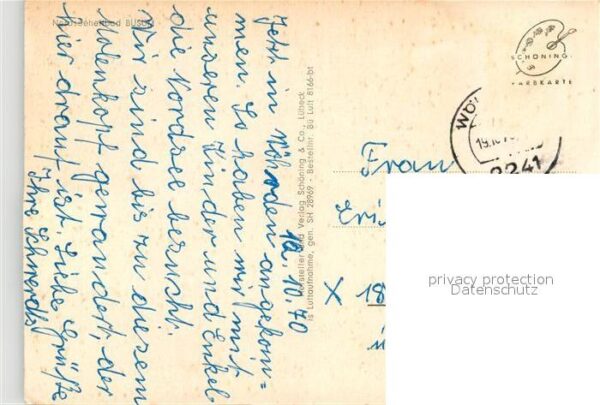 Nordseeheilbad BÜSUM
18. 10. 70
Jetzt in Wöhrden angekom=
men. So haben wir mit
unseren Kinder und Enkel
die Nordsee besucht.
Wir sind bis zu diesem
Molenkopf gewandert, der
hier drauf ist. Liebe Grüße
Ihre
Hersteller und Verlag Schöning & Co., Lübeck
ls Luftaufnahme, gen. SH 28969 - Bestellnr. Bü Luft 8166-bt
SCHÖNING
FARBKARTE
WÖ
2241
Frau
X 18
privacy protection
Datenschutz